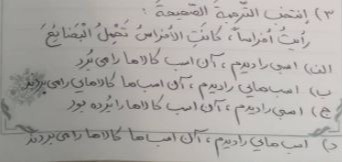 ٣) اِنتخب التَّرجمةَ الصَّحیحةَ :
رأیتُ أفراساً، کانَتِ الأفراسُ تَحمِلُ البَضایعَ
الف) اسبی را دیدم، آن اسب کالاها را می بُرد
ب) اسب هایی را دیدم، آن اسب ها کالاهای را می بردند
ج) اسبی را دیدم، آن اسب کالاها را بُرده بود
د) اسب هایی را دیدم، آن اسب ها کالاها را می بردند